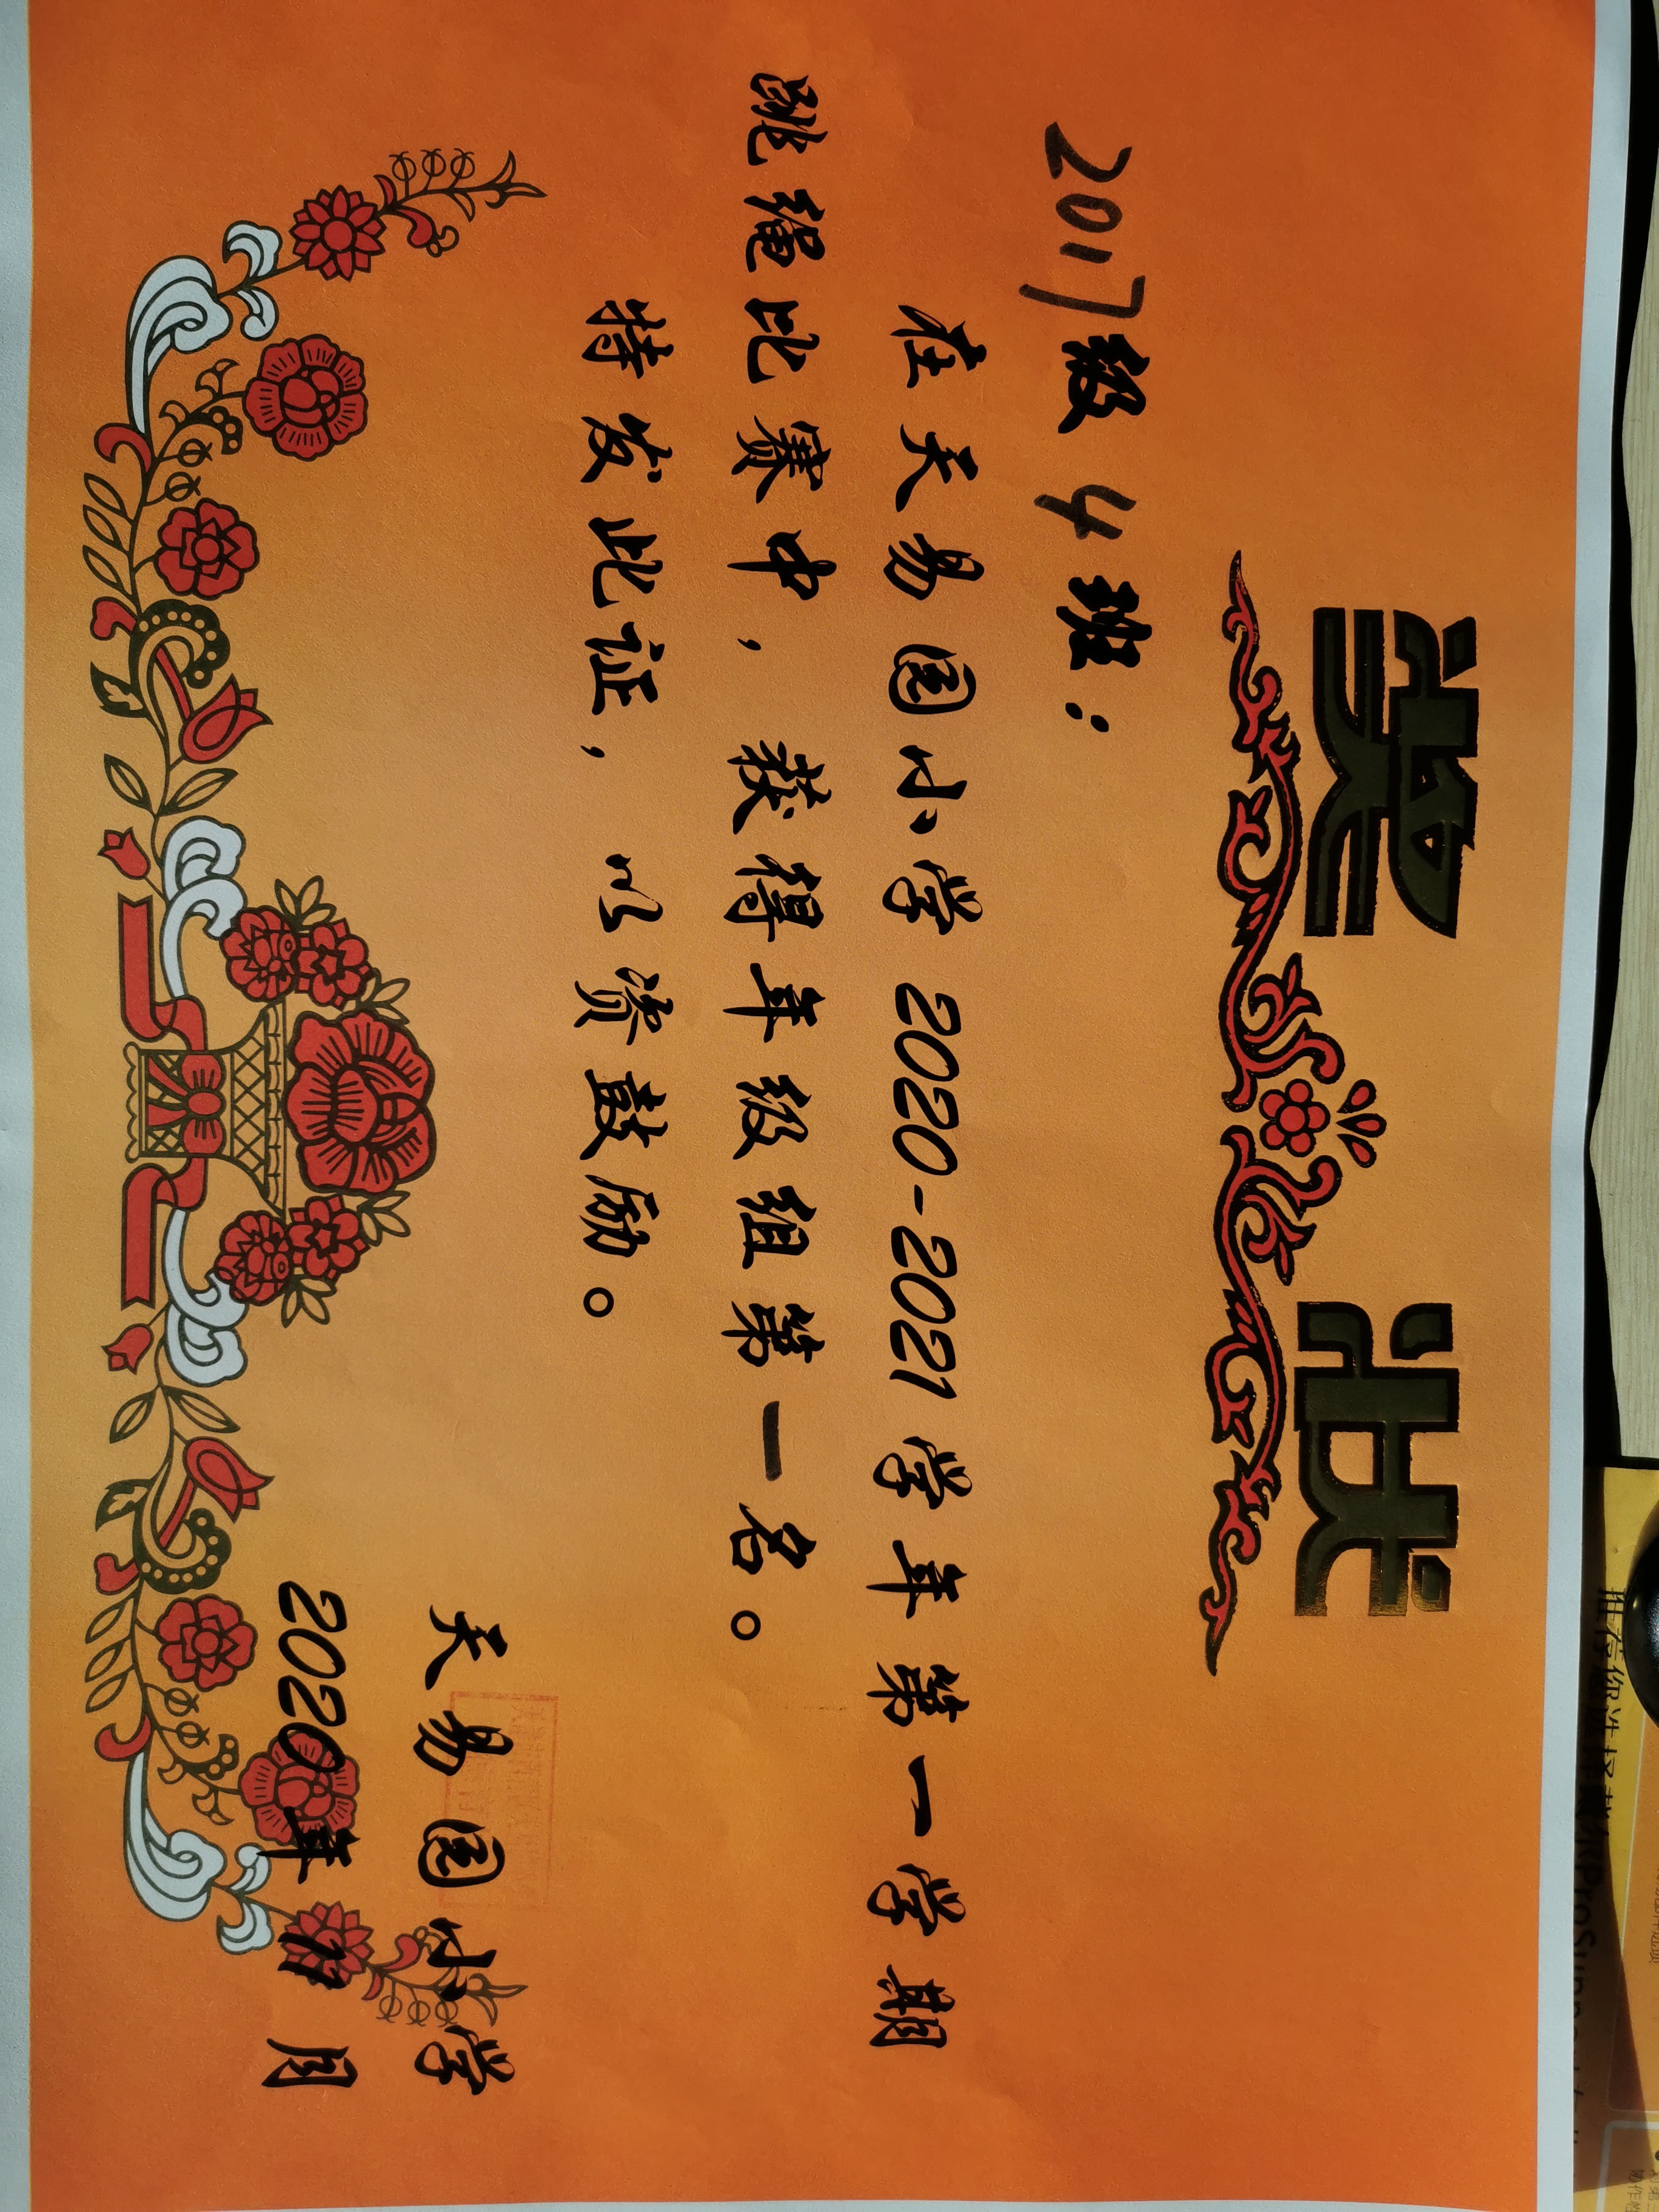 奖状
2017级4班：
在天易园小学2020-2021学年第一学期
跳绳比赛中，获得年级组第一名。
特发此证，以资鼓励。
天易园小学
2020年11月